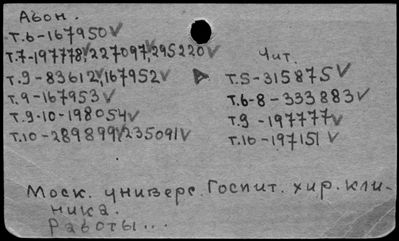 Абон.
т.6-167950✓
т.7-197778✓, 227097✓, 295220✓
т.9-83612✓, 167952✓
т.9-167953✓
т.9-10-198054✓
т.10-289899✓, 235091✓
Чит.
т.5-315875✓
т.6-8-333883✓
т.9-197777✓
т.10-197151✓
Моск. универс. Госпит. хир. кли-
ника.
Работы...